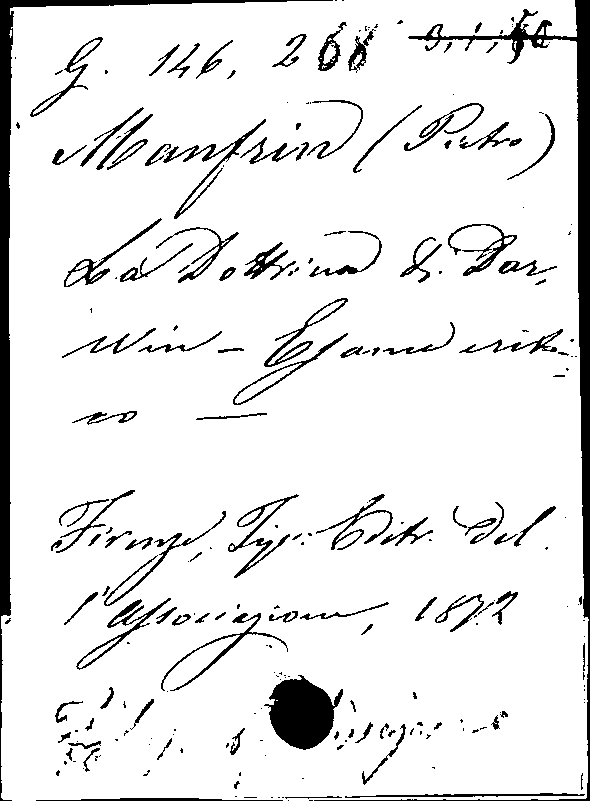 G. 146, 268 3, 1, 50
Manfrin (Pietro)
La Dottrina di Dar-
win – Esame criti-
co —
Firenze, Tip. Editr. del-
l'Associazione, 1872